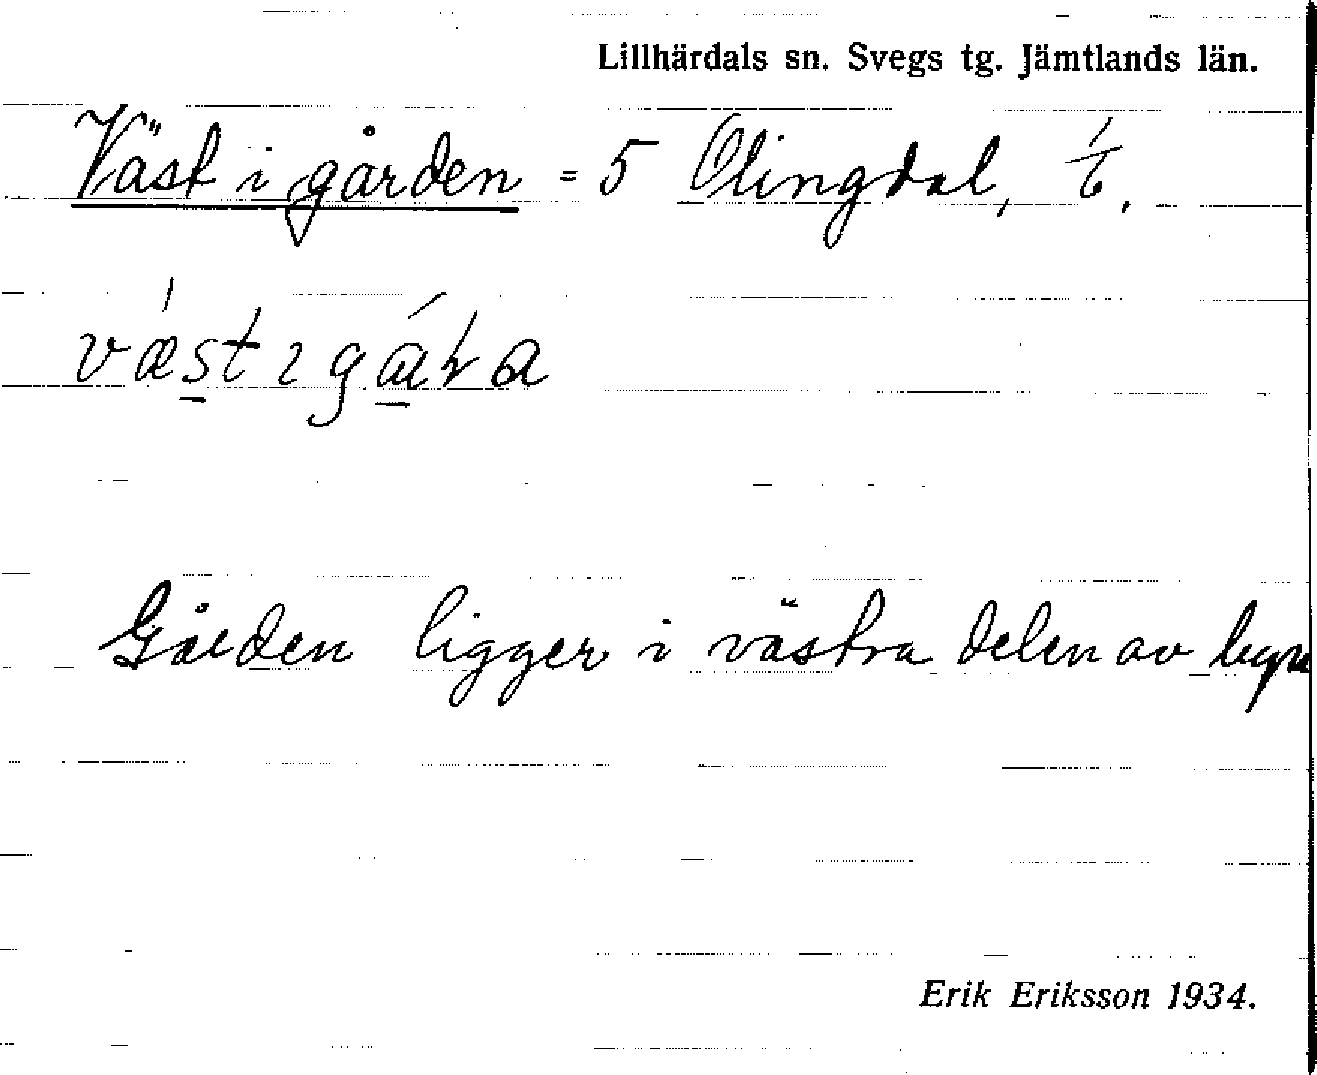 Lillhärdals sn. Svegs tg. Jämtlands län.
Väst i gården = 5 Olingdal, t.
vǽst ı gára
Gården ligger i västra delen av byn
Erik Eriksson 1934.